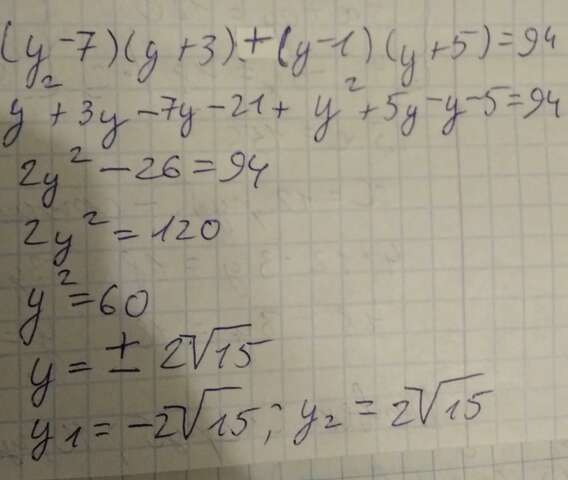 (y-7)(y+3)+(y-1)(y+5)=94
y²+3y-7y-21+y²+5y-y-5=94
2y²-26=94
2y²=120
y²=60
y=±2√15
y₁=-2√15; y₂=2√15